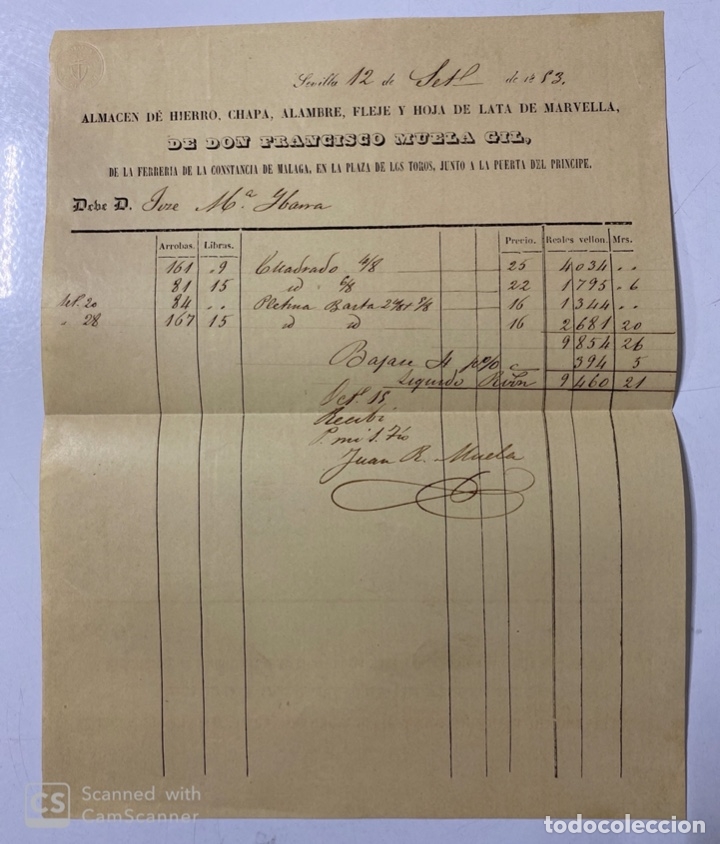 Sevilla 12 de Set.e de 1853.
ALMACEN DE HIERRO, CHAPA, ALAMBRE, FLEJE Y HOJA DE LATA DE MARVELLA,
DE DON FRANCISCO MUELA GIL,
DE LA FERRERIA DE LA CONSTANCIA DE MALAGA, EN LA PLAZA DE LOS TOROS, JUNTO A LA PUERTA DEL PRINCIPE.
Debe D. Jose M.a Ybarra
Arrobas. Libras. Precio. Reales vellon. Mrs.
161 .. 9 Cuadrado 4/8 25 4034 ..
81 15 id 6/8 22 1795 .. 6
Set. 20 84 .. Pletina Basta 16 1344 ..
" 28 167 15 id id 16 2681 20
9854 26
Bajase 4 p% 394 5
Liquido Rvon 9460 21
Oct.e 15
Recibi
P. mi S. Tio
Juan R. Muela
CS Scanned with
CamScanner
todocoleccion
todocoleccion.net